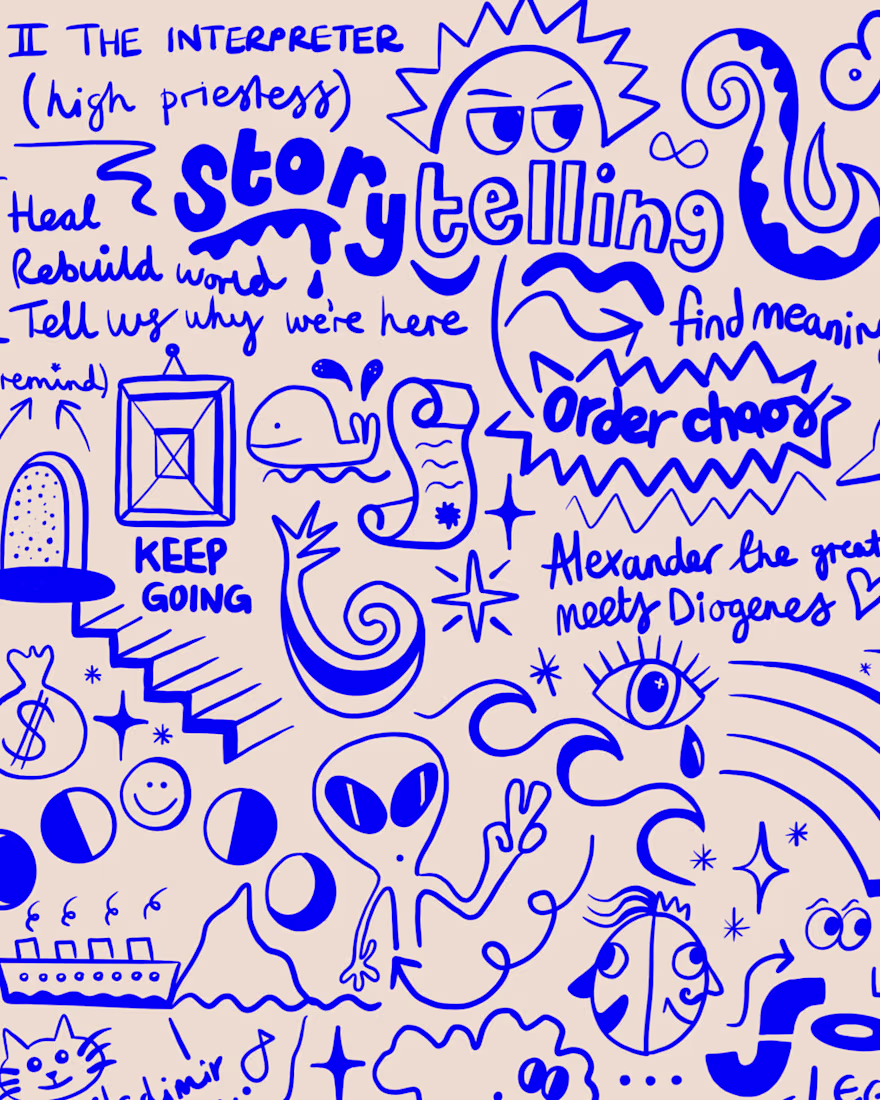 II THE INTERPRETER
(high priestess)
story
telling
Heal
Rebuild world
Tell us why we're here
find meanin
remind)
Order chaos
KEEP
GOING
Alexander the great
meets Diogenes
$